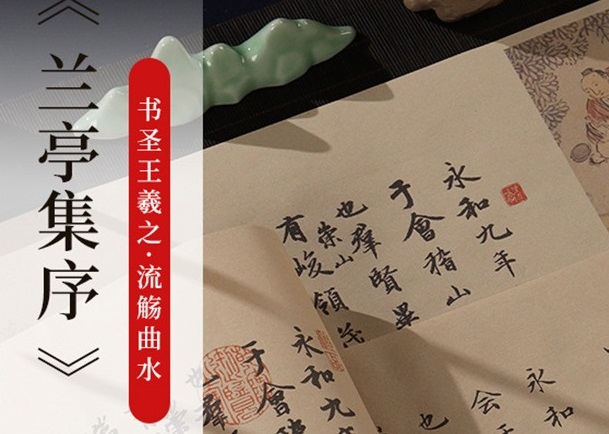 《兰亭集序》
书圣王羲之·流觞曲水
永和九年
于會稽山
也羣賢畢
有崇山峻領茂
永和九
于會
羣
永和
会
也